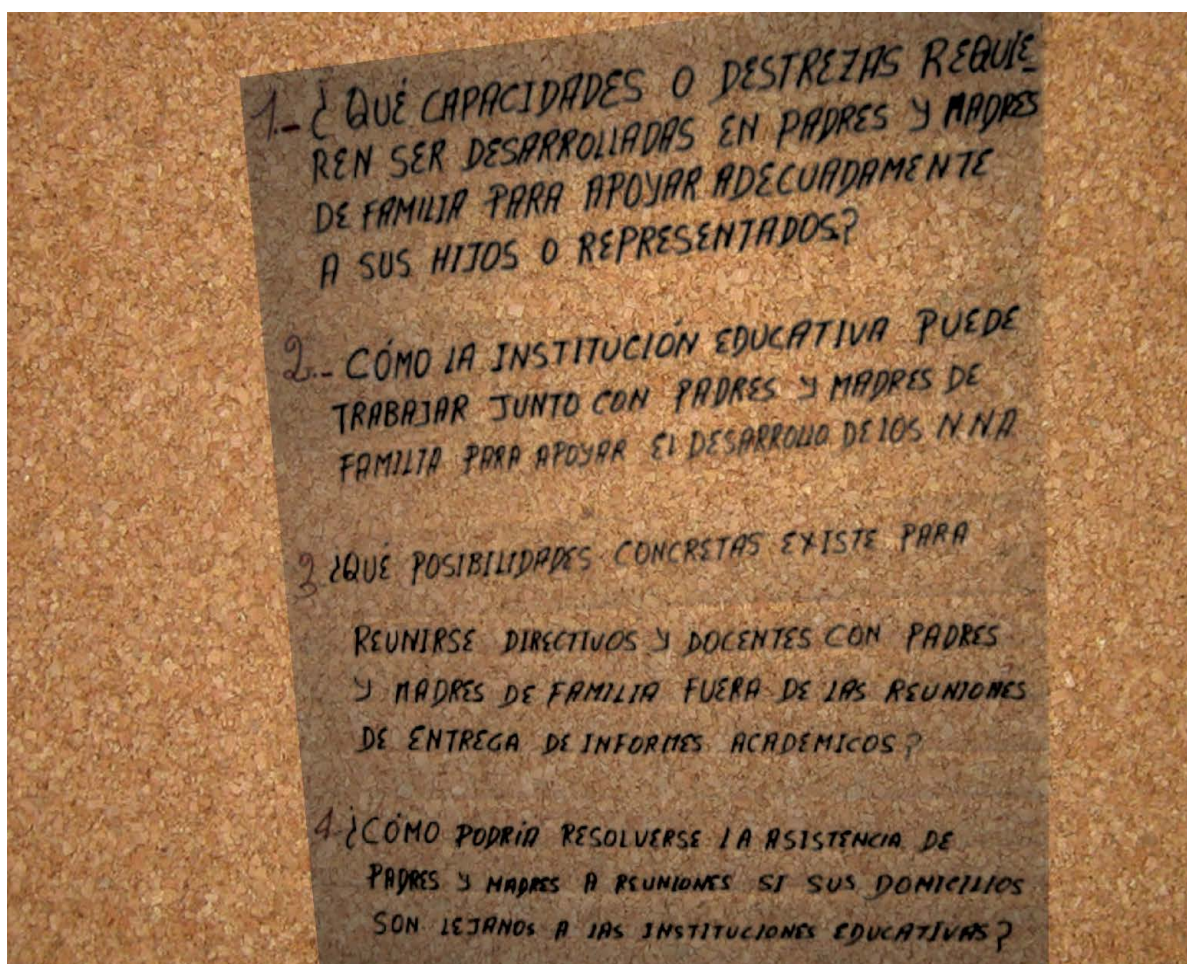 1.- ¿QUÉ CAPACIDADES O DESTREZAS REQUIE_
REN SER DESARROLLADAS EN PADRES Y MADRES
DE FAMILIA PARA APOYAR ADECUADAMENTE
A SUS HIJOS O REPRESENTADOS?
2.- CÓMO LA INSTITUCIÓN EDUCATIVA PUEDE
TRABAJAR JUNTO CON PADRES Y MADRES DE
FAMILIA PARA APOYAR EL DESARROLLO DE LOS N.N.A
3 ¿QUÉ POSIBILIDADES CONCRETAS EXISTE PARA
REUNIRSE DIRECTIVOS Y DOCENTES CON PADRES
Y MADRES DE FAMILIA FUERA DE LAS REUNIONES
DE ENTREGA DE INFORMES ACADEMICOS?
4.- ¿CÓMO PODRÍA RESOLVERSE LA ASISTENCIA DE
PADRES Y MADRES A REUNIONES SI SUS DOMICILIOS
SON LEJANOS A LAS INSTITUCIONES EDUCATIVAS?